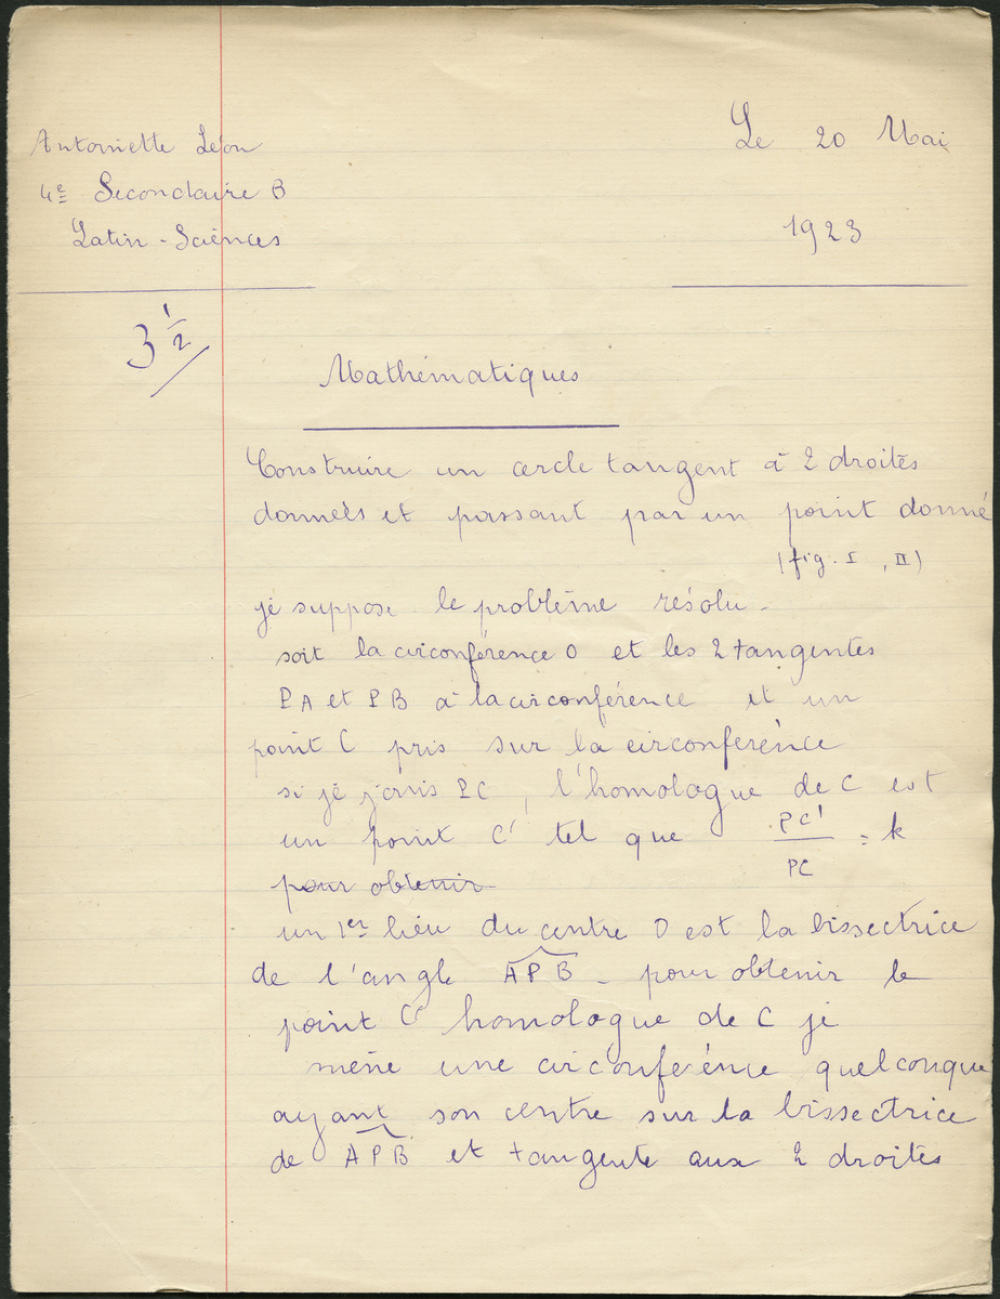 Antoinette Léon
Le 20 Mai
4e Secondaire B
Latin-Sciences
1923
3 1/2
Mathématiques
Construire un cercle tangent à 2 droites
donnés et passant par un point donné
(fig. I, II)
je suppose le problème résolu -
soit la circonférence O et les 2 tangentes
PA et PB à la circonférence et un
point C pris sur la circonférence
si je joins PC, l'homologue de C est
un point C' tel que PC'/PC = k
pour obtenir
un 1er lieu du centre O est la bissectrice
de l'angle APB - pour obtenir le
point C' homologue de C je
mène une circonférence quelconque
ayant son centre sur la bissectrice
de APB et tangente aux 2 droites